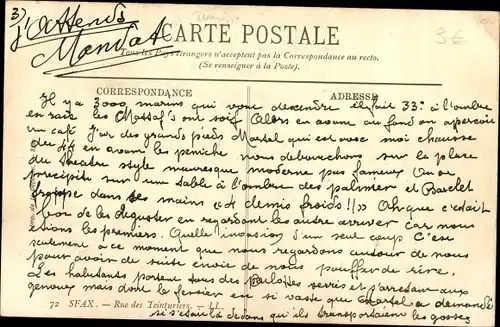 3)
J'attends
Mandat
CARTE POSTALE
Tous les Pays étrangers n'acceptent pas la Correspondance au recto.
(Se renseigner à la Poste).
3€
CORRESPONDANCE
ADRESSE
Il y a 3000 marins qui vont descendre il fait 33° à l'ombre
en rade les ont soif Alors en avant au fond on aperçoit
un café J'ai des grands pieds Martel qui est avec moi chausse
du 44 en avant les péniche nous débouchons sur la place
du théâtre style mauresque moderne pas fameux On se
précipite sur une table à l'ombre des palmier et Barclet
frappe dans ses mains "4 demis froids!!" Oh que c'était
bon de les déguster en regardant les autre arriver car nous
étions les premiers. Quelle invasion d'un seul coup C'est
seulement à ce moment que nous regardons autour de nous
pour avoir de suite envie de nous pouffer de rire.
Les habitants portent tous des culottes serrés et s'arretant aux
genoux mais dont le fessier en si vaste que Martel a demandé
72 SFAX. — Rue des Teinturiers. — LL.
si s'était là dedans qu'ils transportaient les gosses